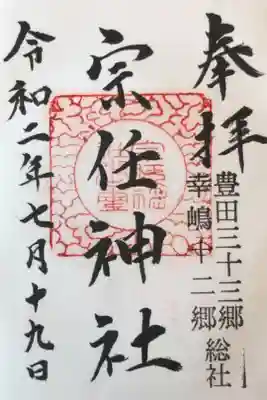 奉拝
豊田三十三郷
幸嶋十二郷総社
宗任神社
令和二年七月十九日